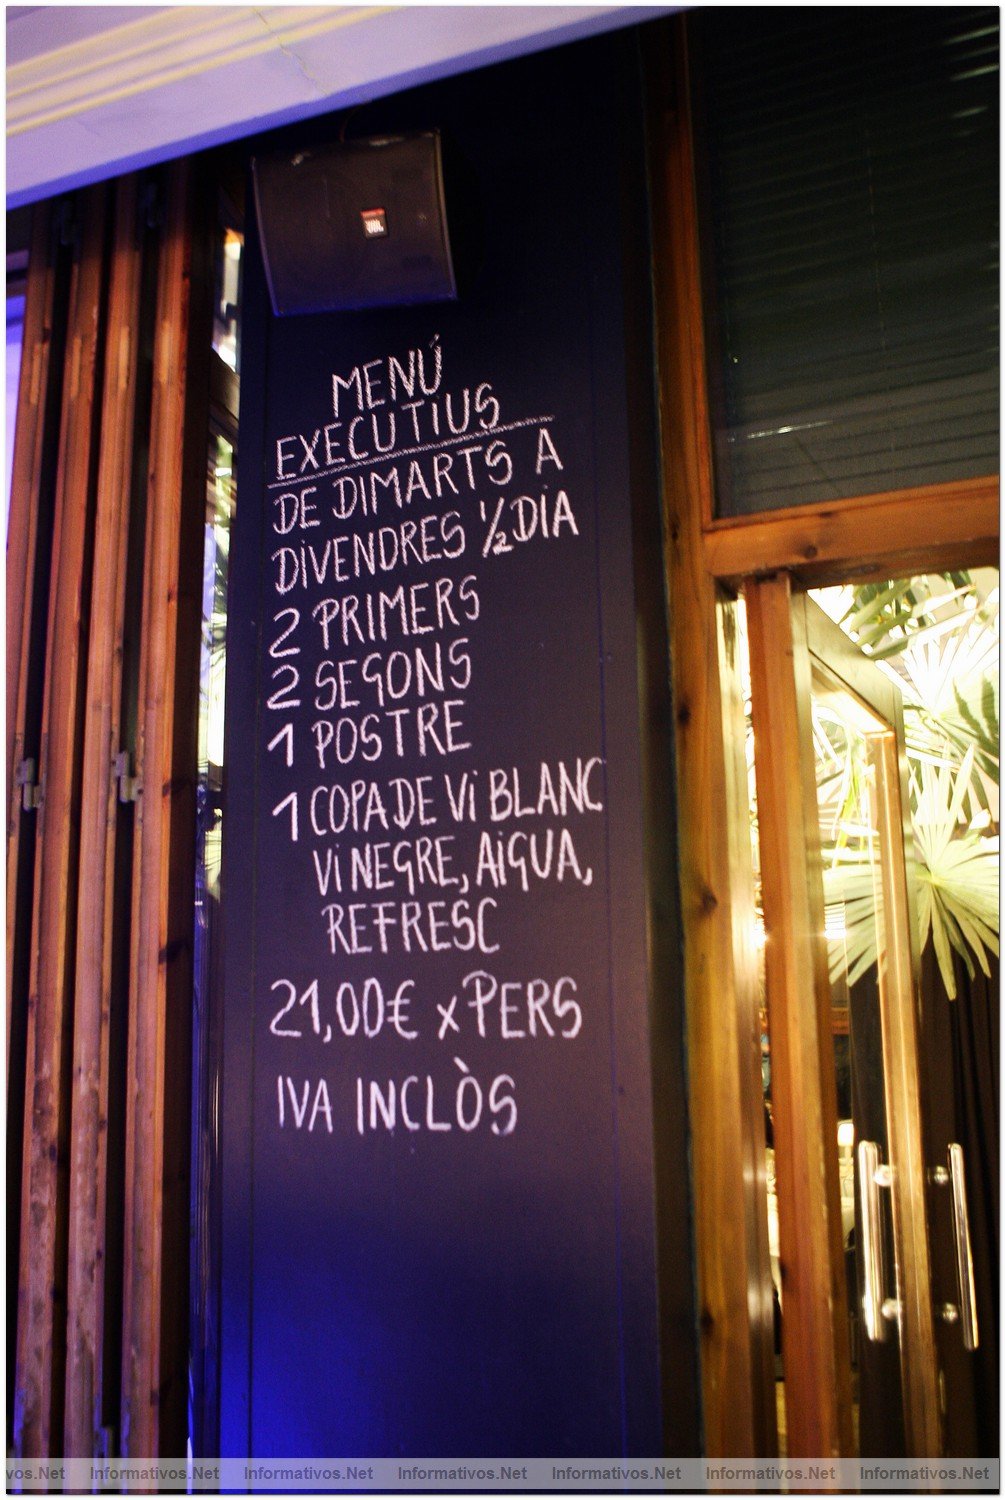 JBL
MENÚ
EXECUTIUS
DE DIMARTS A
DIVENDRES ½ DIA
2 PRIMERS
2 SEGONS
1 POSTRE
1 COPA DE Vi BLANC
Vi NEGRE, AiGUA,
REFRESC
21,00€ x PERS
IVA INCLÒS
vos.Net Informativos.Net Informativos.Net Informativos.Net Informativos.Net Informativos.Net Informativos.Net